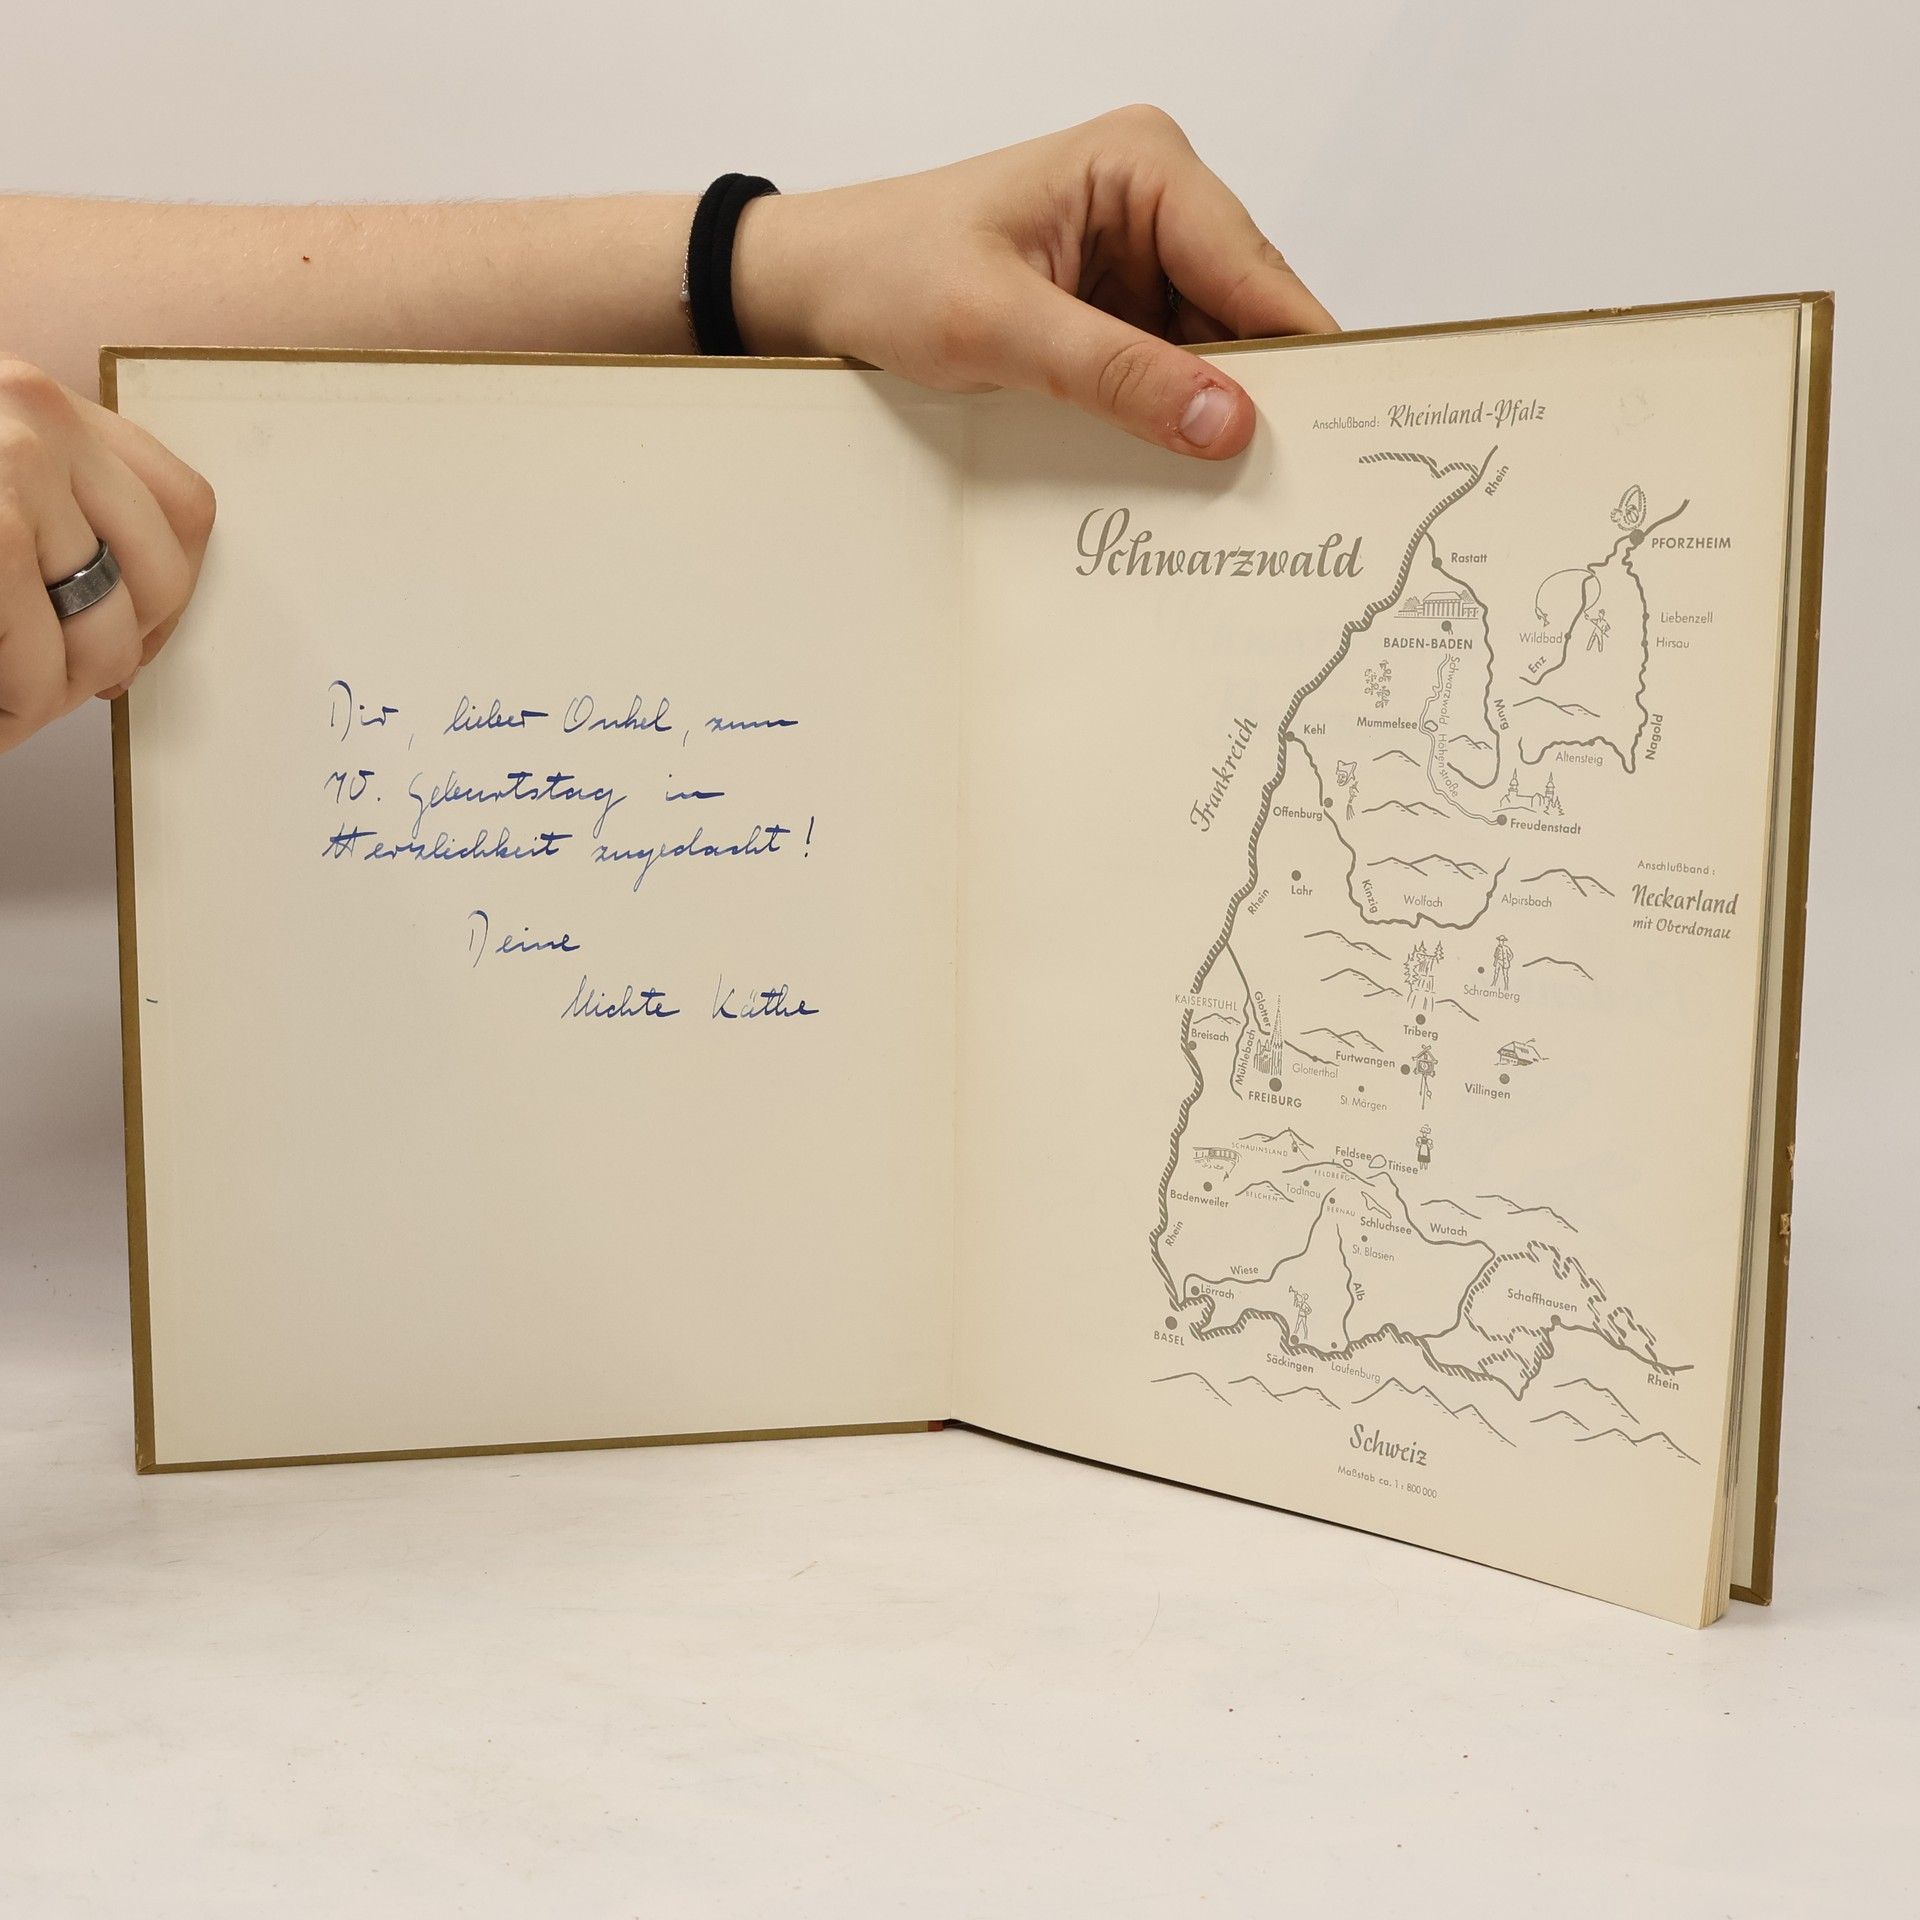 Dir, lieber Onkel, zum
70. Geburtstag in
Herzlichkeit zugedacht!
Deine
Nichte Käthe
Anschlußband: Rheinland-Pfalz
Rhein
Schwarzwald
PFORZHEIM
Rastatt
Liebenzell
Wildbad
Hirsau
BADEN-BADEN
Enz
Schwarzwald Hochstraße
Mummelsee
Murg
Nagold
Kehl
Altensteig
Frankreich
Offenburg
Freudenstadt
Anschlußband:
Neckarland
mit Oberdonau
Lahr
Rhein
Kinzig
Wolfach
Alpirsbach
Schramberg
KAISERSTUHL
Glotter
Breisach
Triberg
Mühlebach
Furtwangen
Glottertal
Villingen
FREIBURG
St. Märgen
SCHAUINSLAND
Feldsee
Titisee
FELDBERG
Badenweiler
BELCHEN
Todtnau
BERNAU
Schluchsee
Wutach
Rhein
St. Blasien
Wiese
Lörrach
Alb
Schaffhausen
BASEL
Säckingen
Laufenburg
Rhein
Schweiz
Maßstab ca. 1 : 800 000